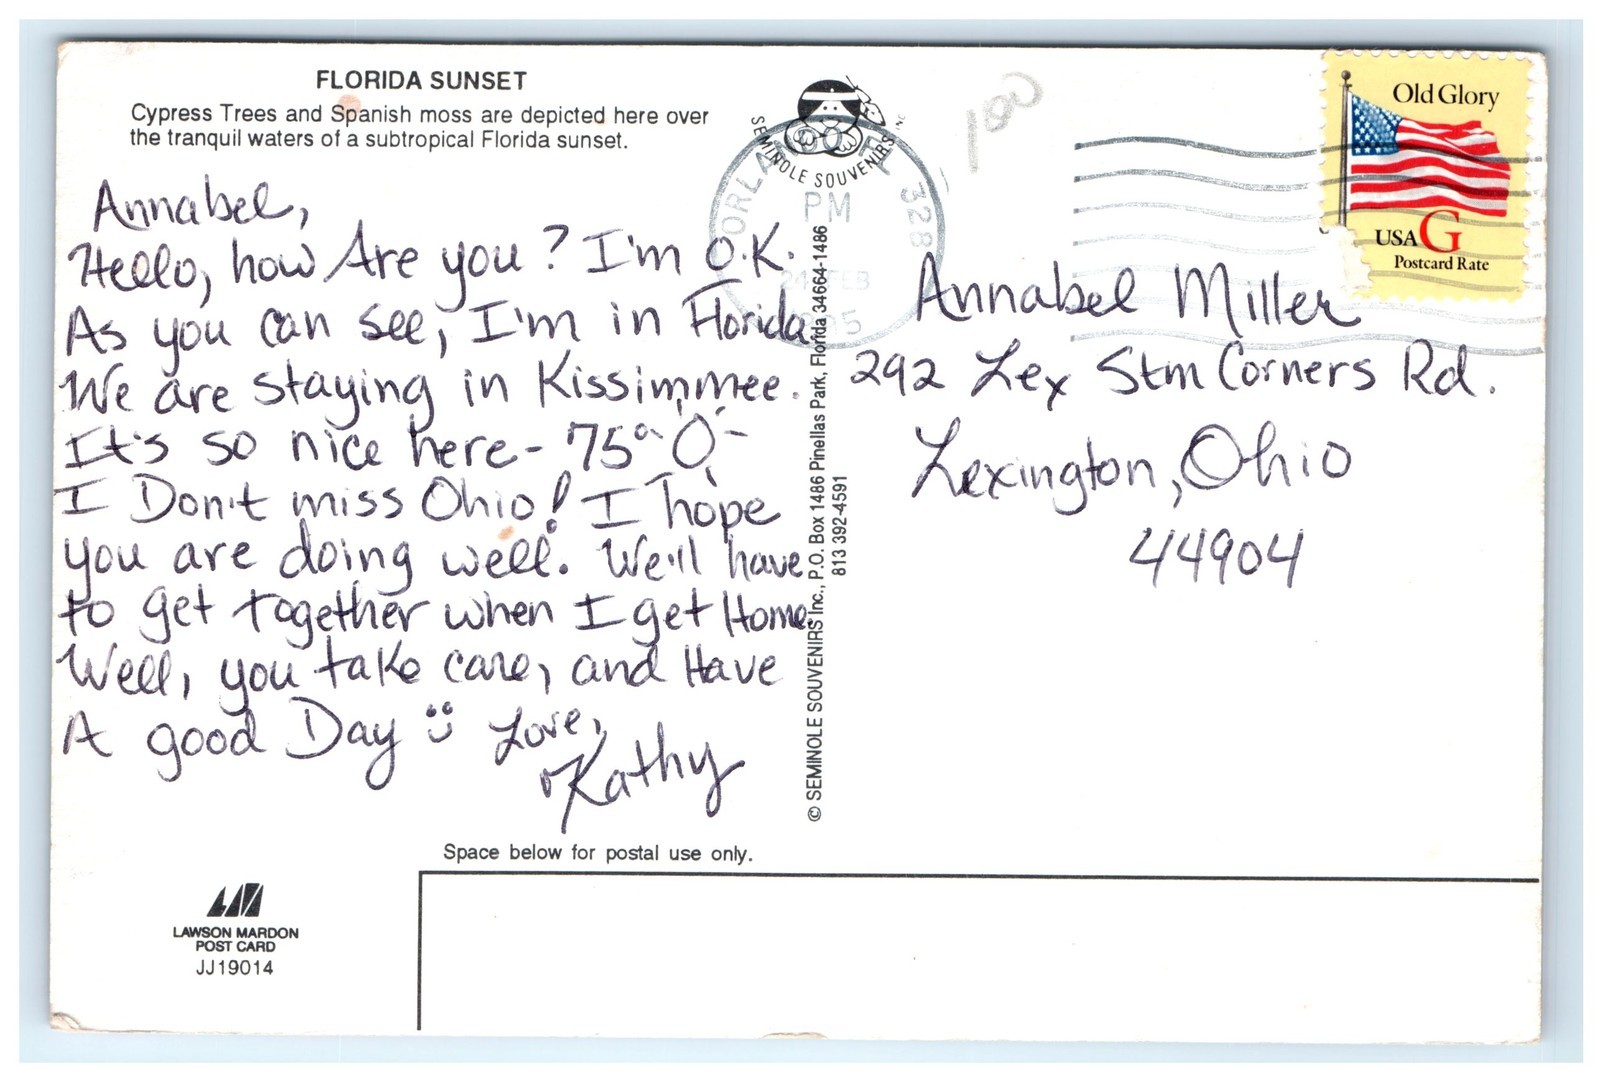 FLORIDA SUNSET
Cypress Trees and Spanish moss are depicted here over
the tranquil waters of a subtropical Florida sunset.
Annabel,
Hello, how Are you? I'm O.K.
As you can see, I'm in Florida.
We are staying in Kissimmee.
It's so nice here - 75°
I Don't miss Ohio! I hope
you are doing well. We'll have
to get together when I get Home.
Well, you take care, and Have
A good Day Love,
Kathy
LAWSON MARDON
POST CARD
JJ19014
Space below for postal use only.
© SEMINOLE SOUVENIRS Inc., P.O. Box 1486 Pinellas Park, Florida 34664-1486
813 392-4591
SEMINOLE SOUVENIRS INC
ORLANDO FL 328
PM
24 FEB
100
Old Glory
USA G
Postcard Rate
Annabel Miller
292 Lex Stm Corners Rd.
Lexington, Ohio
44904